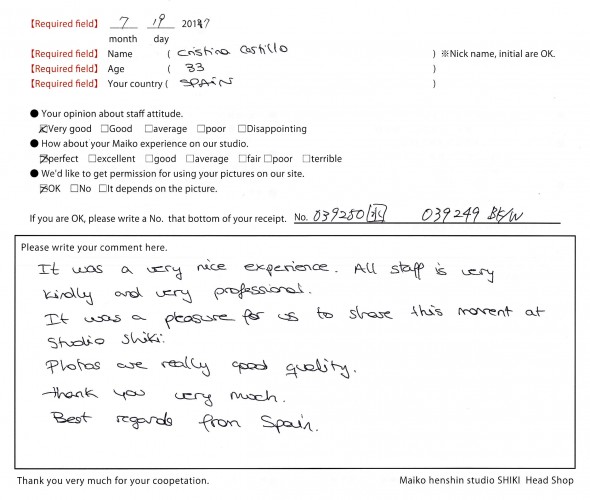 【Required field】 7 19 2017
month day
【Required field】 Name ( Cristina Castillo ) ※Nick name, initial are OK.
【Required field】 Age ( 33 )
【Required field】 Your country ( SPAIN )
● Your opinion about staff attitude.
☒Very good □Good □average □poor □Disappointing
● How about your Maiko experience on our studio.
☒perfect □excellent □good □average □fair □poor □terrible
● We'd like to get permission for using your pictures on our site.
☒OK □No □It depends on the picture.
If you are OK, please write a No. that bottom of your receipt. No. 039280 039249 BK/W
Please write your comment here.
It was a very nice experience. All staff is very
kindly and very professional.
It was a pleasure for us to share this moment at
Studio Shiki.
Photos are really good quality.
thank you very much.
Best regards from Spain.
Thank you very much for your coopetation. Maiko henshin studio SHIKI Head Shop